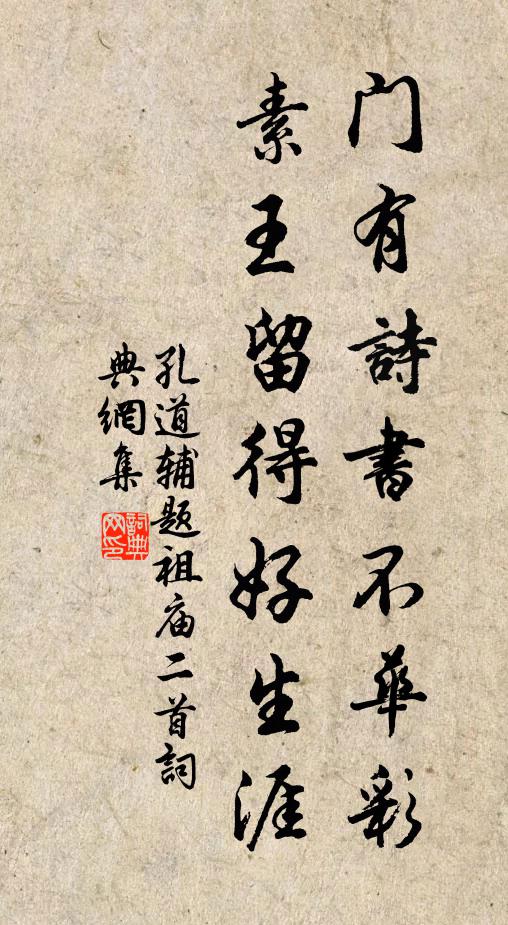 门有詩書不華彩
素王留得好生涯
孔道辅题祖庙二首詞
典網集
詞典网印